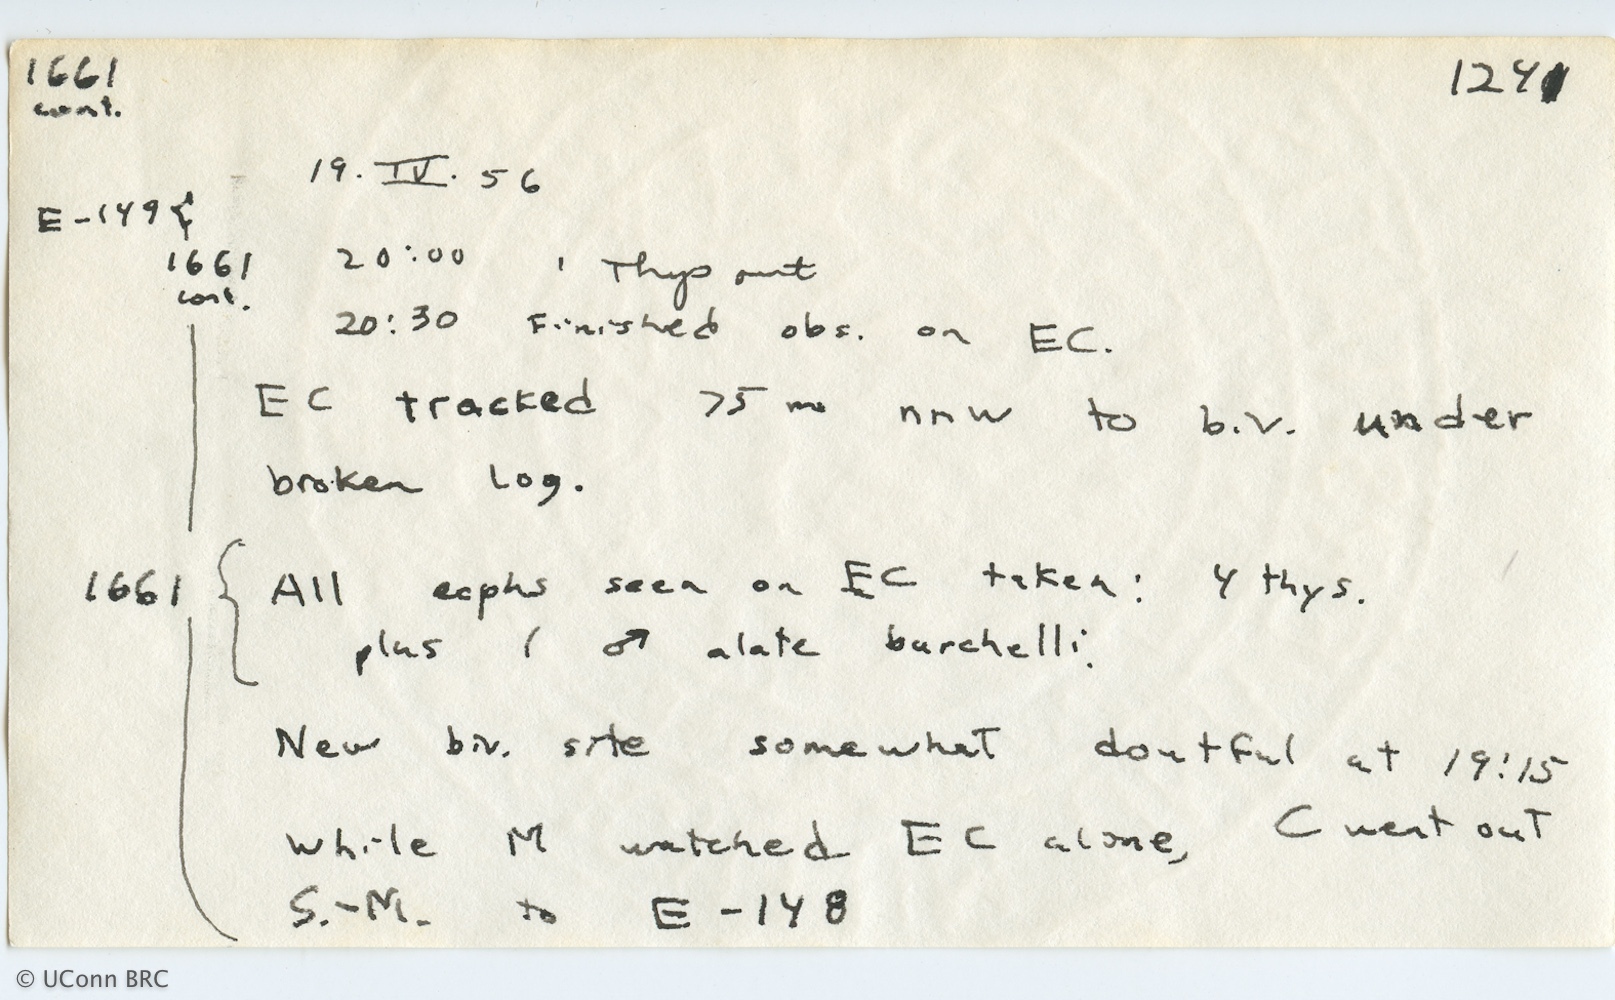 1661 1241
cont.
19.IV.56
E-149{
1661 20:00 1 Thys out
cont.
20:30 Finished obs. on EC.
EC tracked >5 m nnw to b.v. under
broken log.
1661 { All ecphs seen on EC taken: 4 thys.
plus 1 ♂ alate burchelli.
New biv. site somewhat doutful at 19:15
while M watched EC alone, C went out
S.-M. to E-148
© UConn BRC